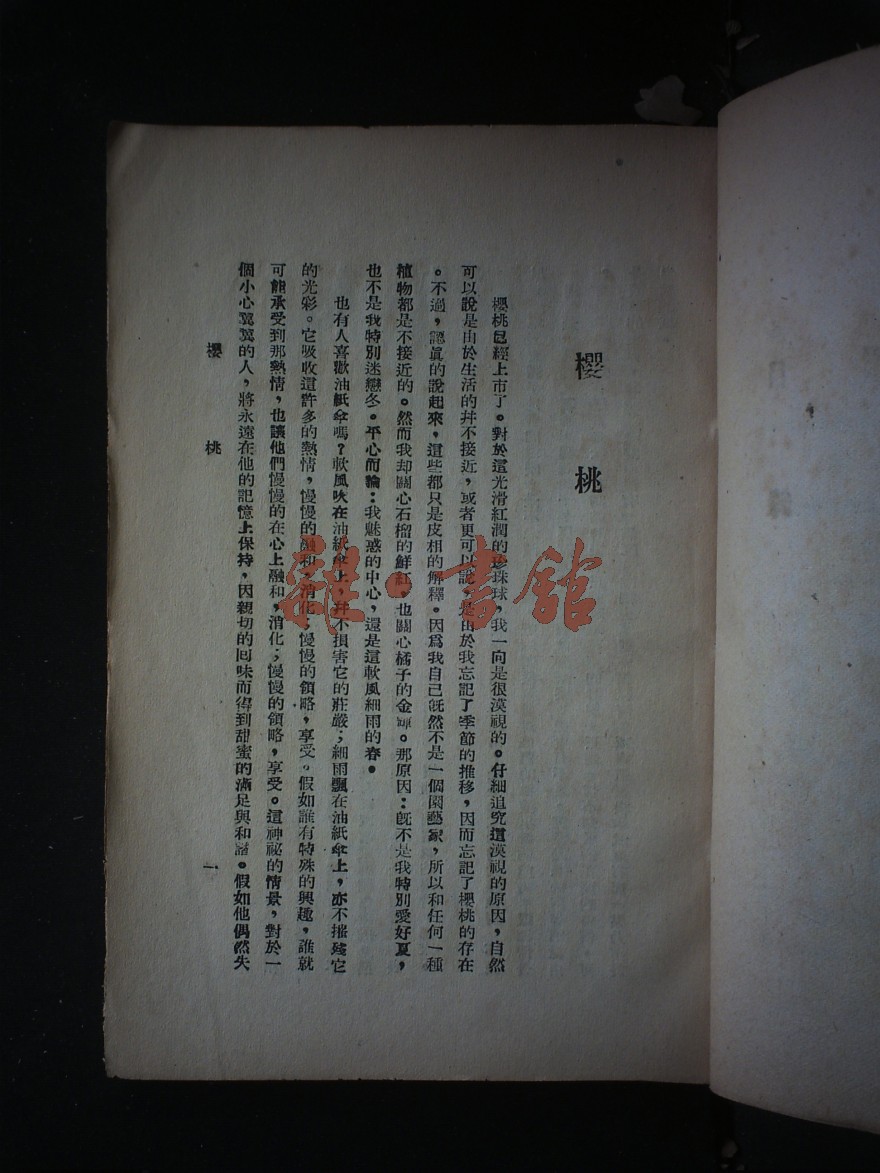 櫻桃
櫻桃已經上市了。對於這光滑紅潤的珍珠球，我一向是很漠視的。仔細追究這漠視的原因，自然
可以說是由於生活的幷不接近，或者更可以說，是由於我忘記了季節的推移，因而忘記了櫻桃的存在
。不過，認眞的說起來，這些都只是皮相的解釋。因爲我自己旣然不是一個園藝家，所以和任何一種
植物都是不接近的。然而我却關心石榴的鮮紅，也關心橘子的金輝。那原因：旣不是我特別愛好夏，
也不是我特別迷戀冬。平心而論：我魅惑的中心，還是這軟風細雨的春。
也有人喜歡油紙傘嗎？軟風吹在油紙傘上，幷不損害它的莊嚴；細雨飄在油紙傘上，亦不摧殘它
的光彩。它吸收這許多的熱情，慢慢的融和，消化；慢慢的領略，享受。假如誰有特殊的興趣，誰就
可能承受到那熱情，也讓他們慢慢的在心上融和，消化；慢慢的領略，享受。這神祕的情景，對於一
個小心翼翼的人，將永遠在他的記憶上保持，因親切的回味而得到甜蜜的滿足與和諧。假如他偶然失
櫻桃
一
雜·書館